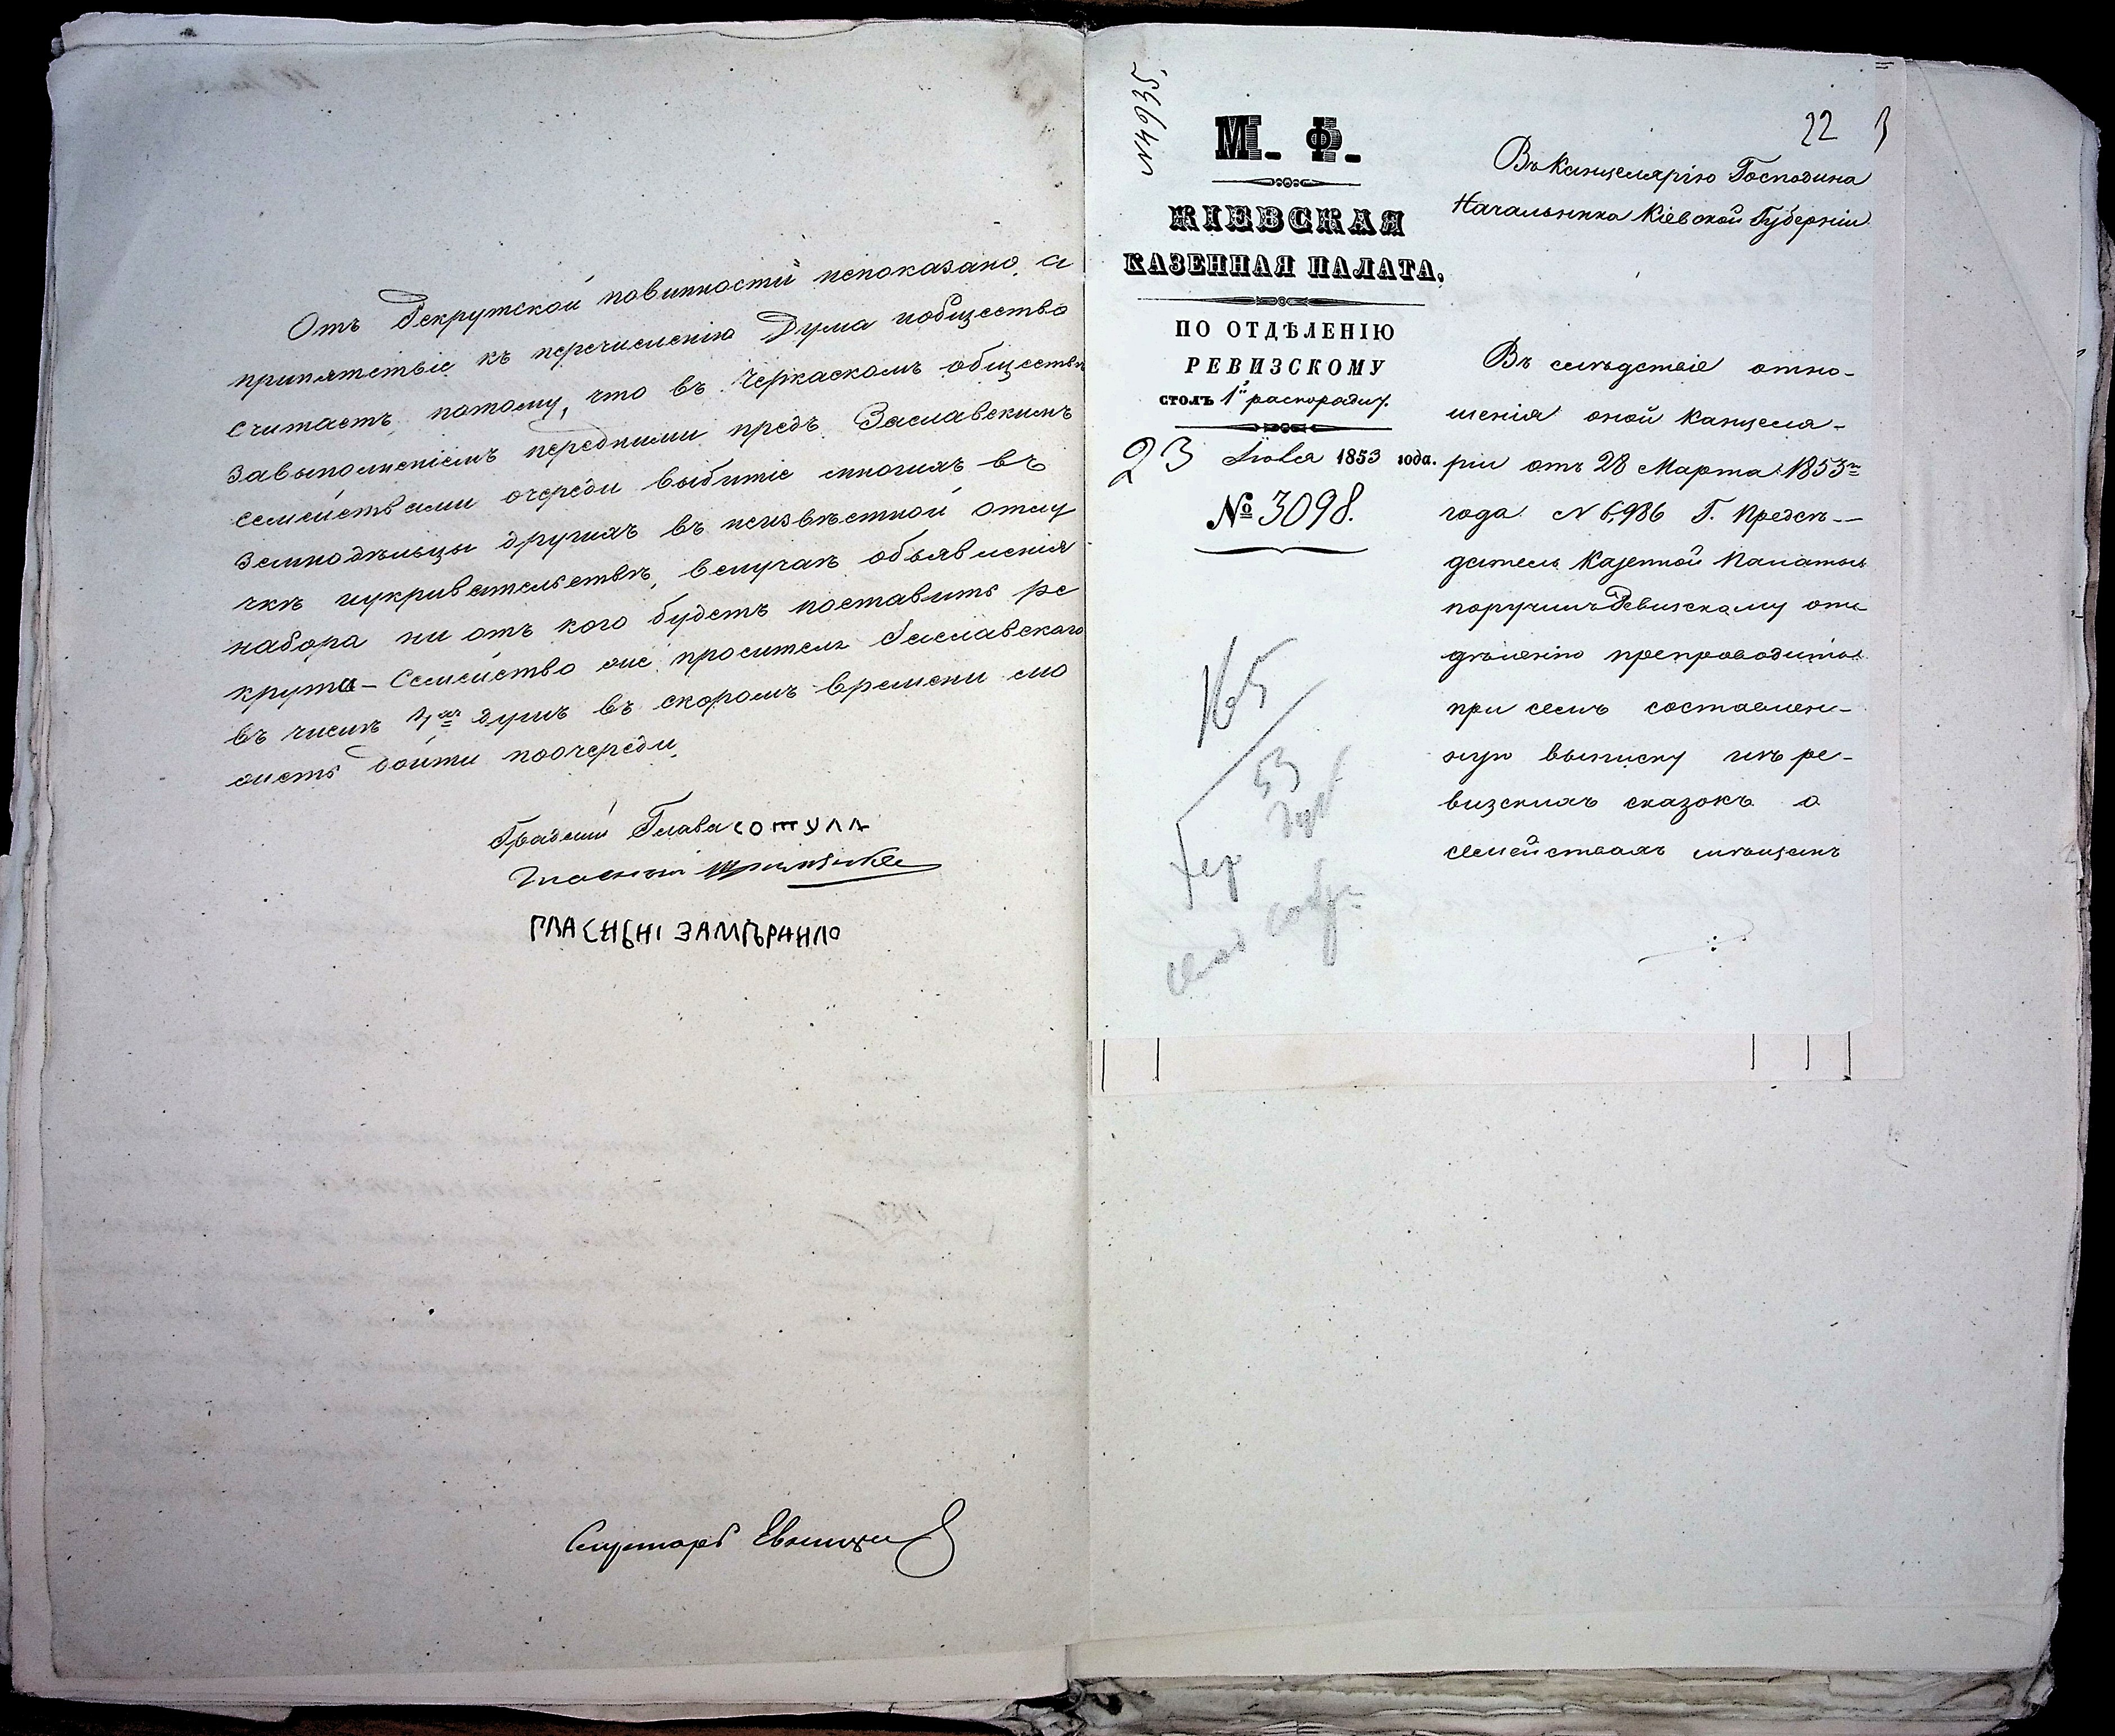 Отъ Рекрутской повинности непоказано, а
припятствіе къ перечисленію Дума иобщество
считаетъ потому, что въ Черкаскомъ обществѣ
завыполненіемъ передними предъ Заславскимъ
семействами очереди выбытіе многихъ въ
Земледѣльцы другихъ въ неизвѣстной отлу
чкѣ иукривательствѣ, вслучаѣ объявленія
набора ни отъ кого будетъ поставить ре
крута - Семейство же просителя Заславскаго
въ числѣ душъ въ скоромъ времени мо
жетъ дойти поочереди.
Градскій Глава сотула
Гласный
ГЛАСНЫНІ
Секретарь
N4935.
22
М. Ф.
КІЕВСКАЯ
КАЗЕННАЯ ПАЛАТА,
ПО ОТДѢЛЕНІЮ
РЕВИЗСКОМУ
столъ 1й распорядит.
23 Іюля 1853 года.
№ 3098.
165
53
Въ Канцелярію Господина
Начальника Кіевской Губерніи
Въ слѣдствіе отно-
шенія оной Канцеля-
ріи отъ 28 Марта 1853го
года N 6,986 Г. Предсѣ-
датель Казенной Палаты
поручилъ Ревизскому отъ
дѣленію препроводить
при семъ составлен-
ную выписку изъ ре-
визскихъ сказокъ о
семействахъ мѣщанъ